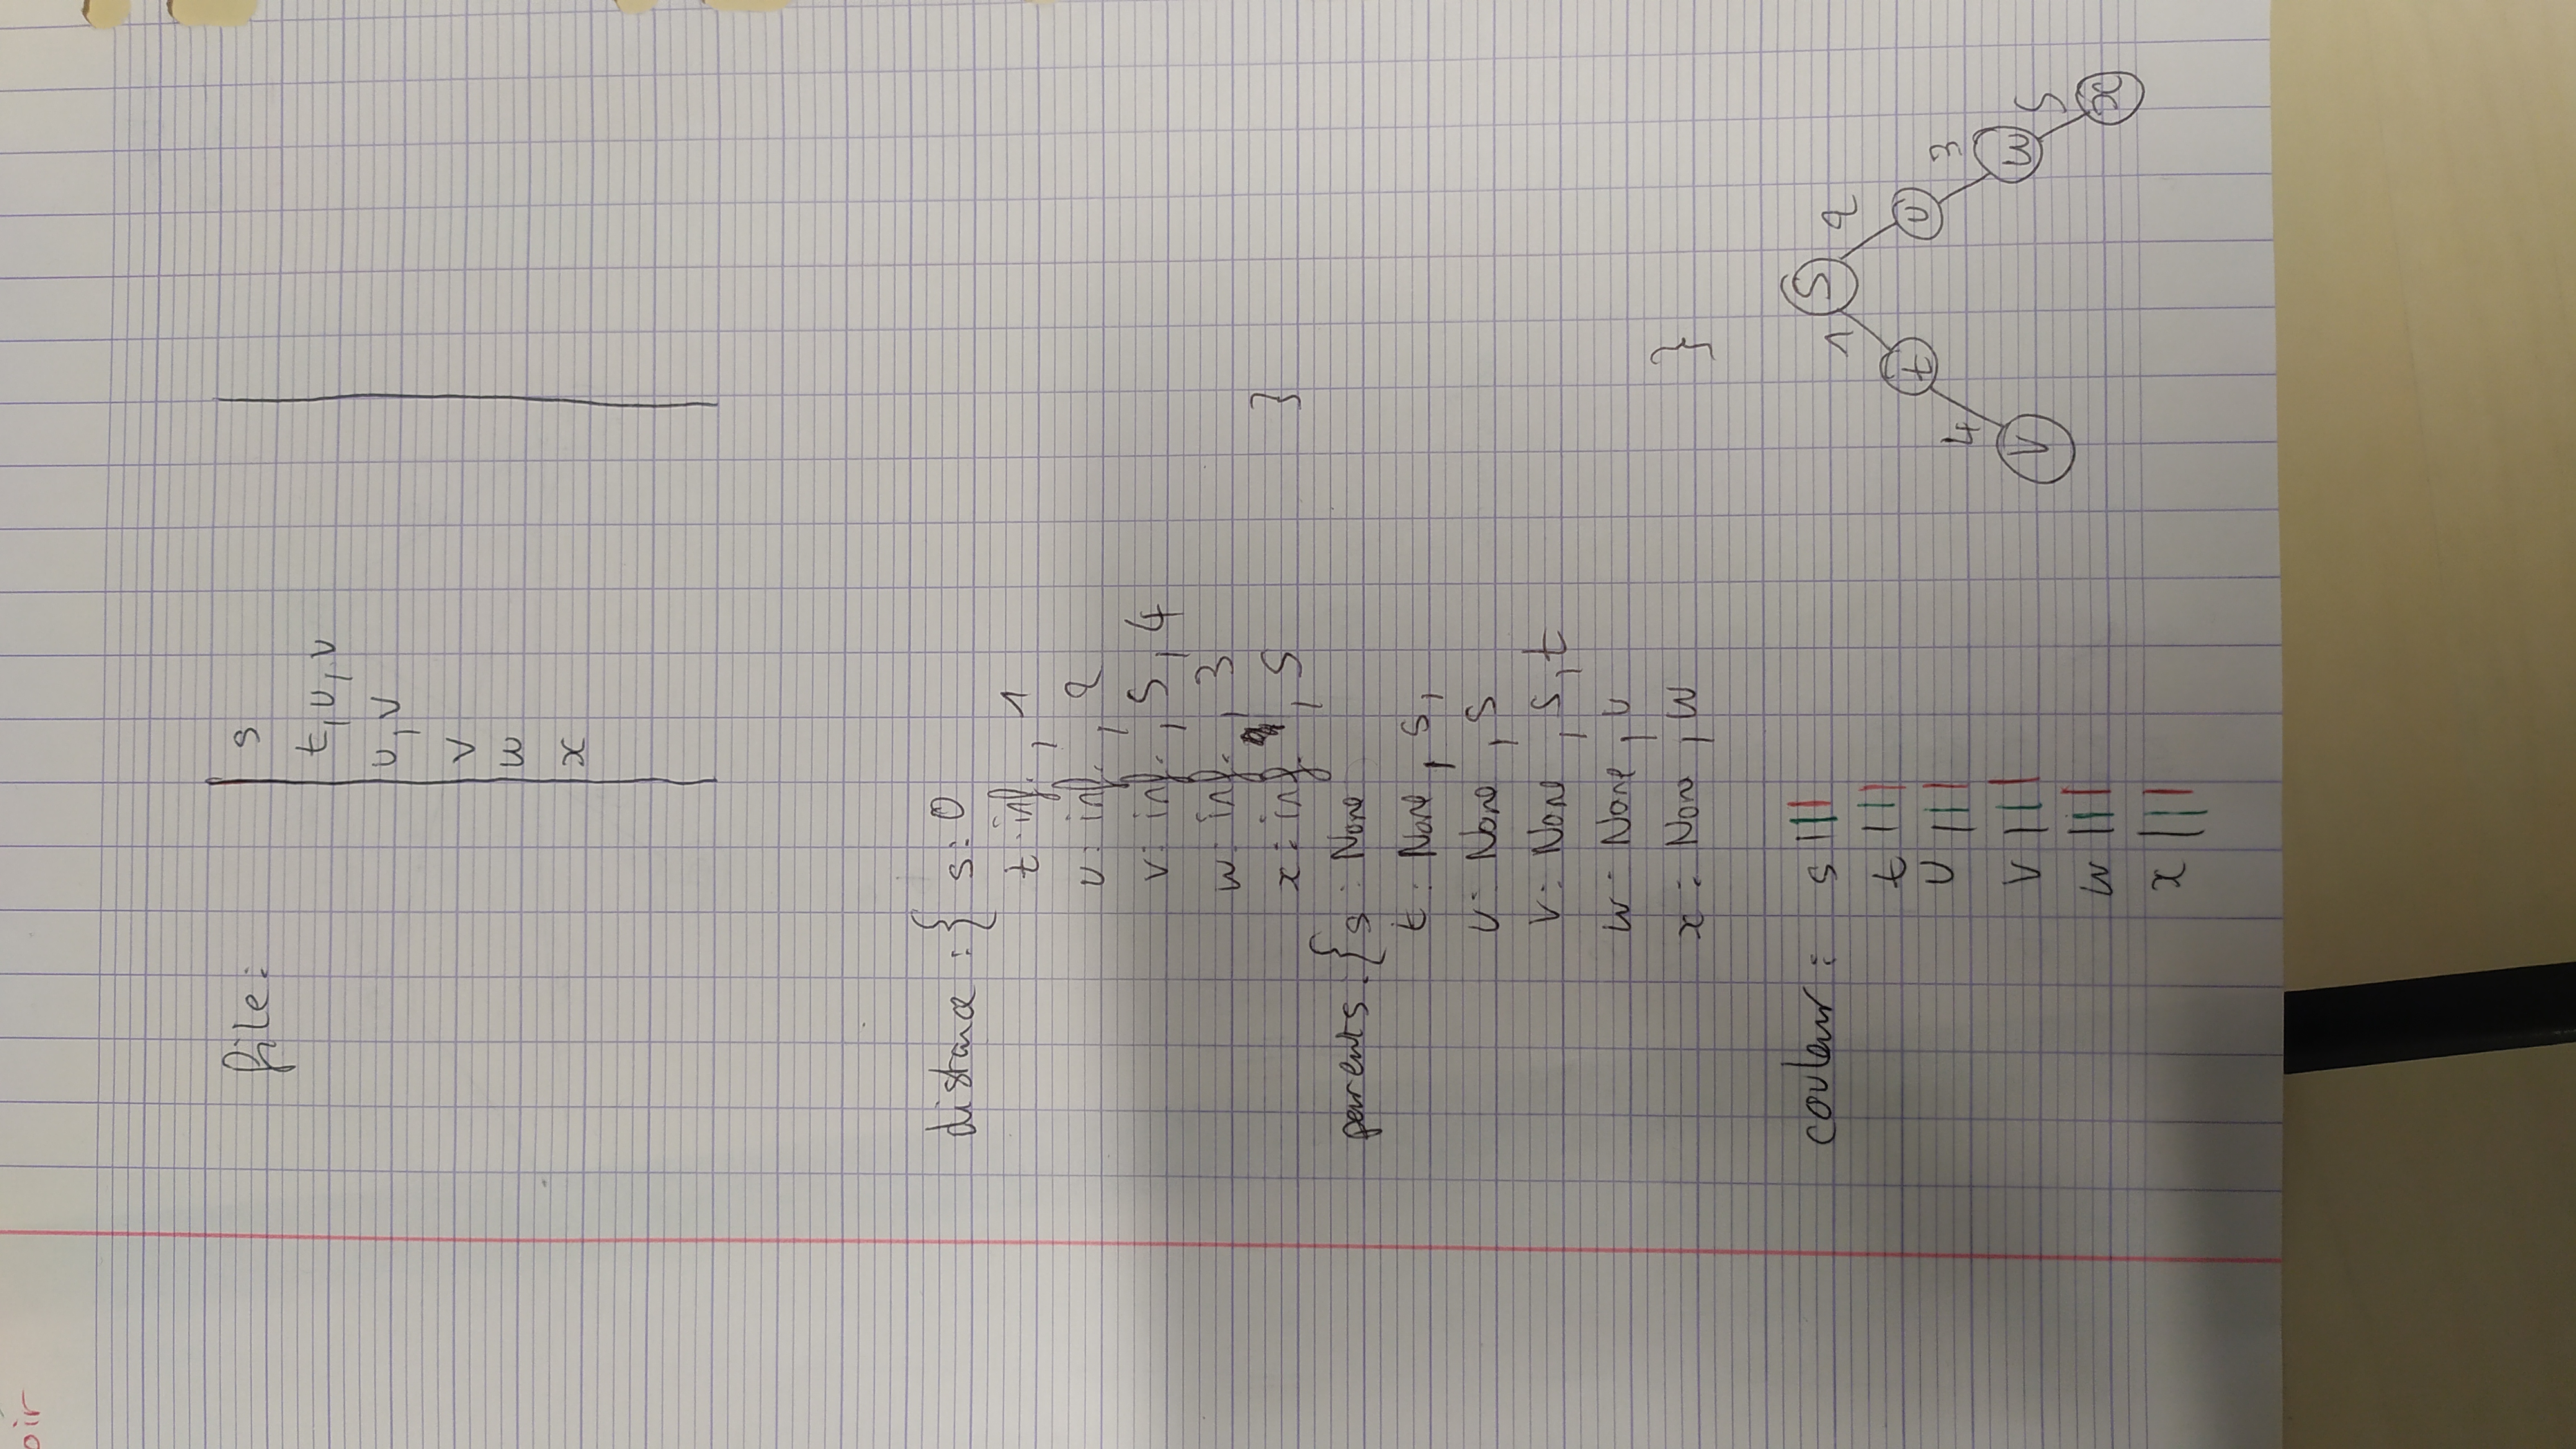 oir
file: s
t, u, v
u, v
v
w
x
distance : { s: 0
t: inf. , 1
u: inf. , 2
v: inf. , 5, 4
w: inf. , 3
x: inf. , 5 }
parents: { s: None
t: None, s,
u: None, s
v: None, s, t
w: None, u
x: None, w }
couleur : s |||
t |||
u |||
v |||
w |||
x |||
S
1 2
t u
4 3
V w
5
x